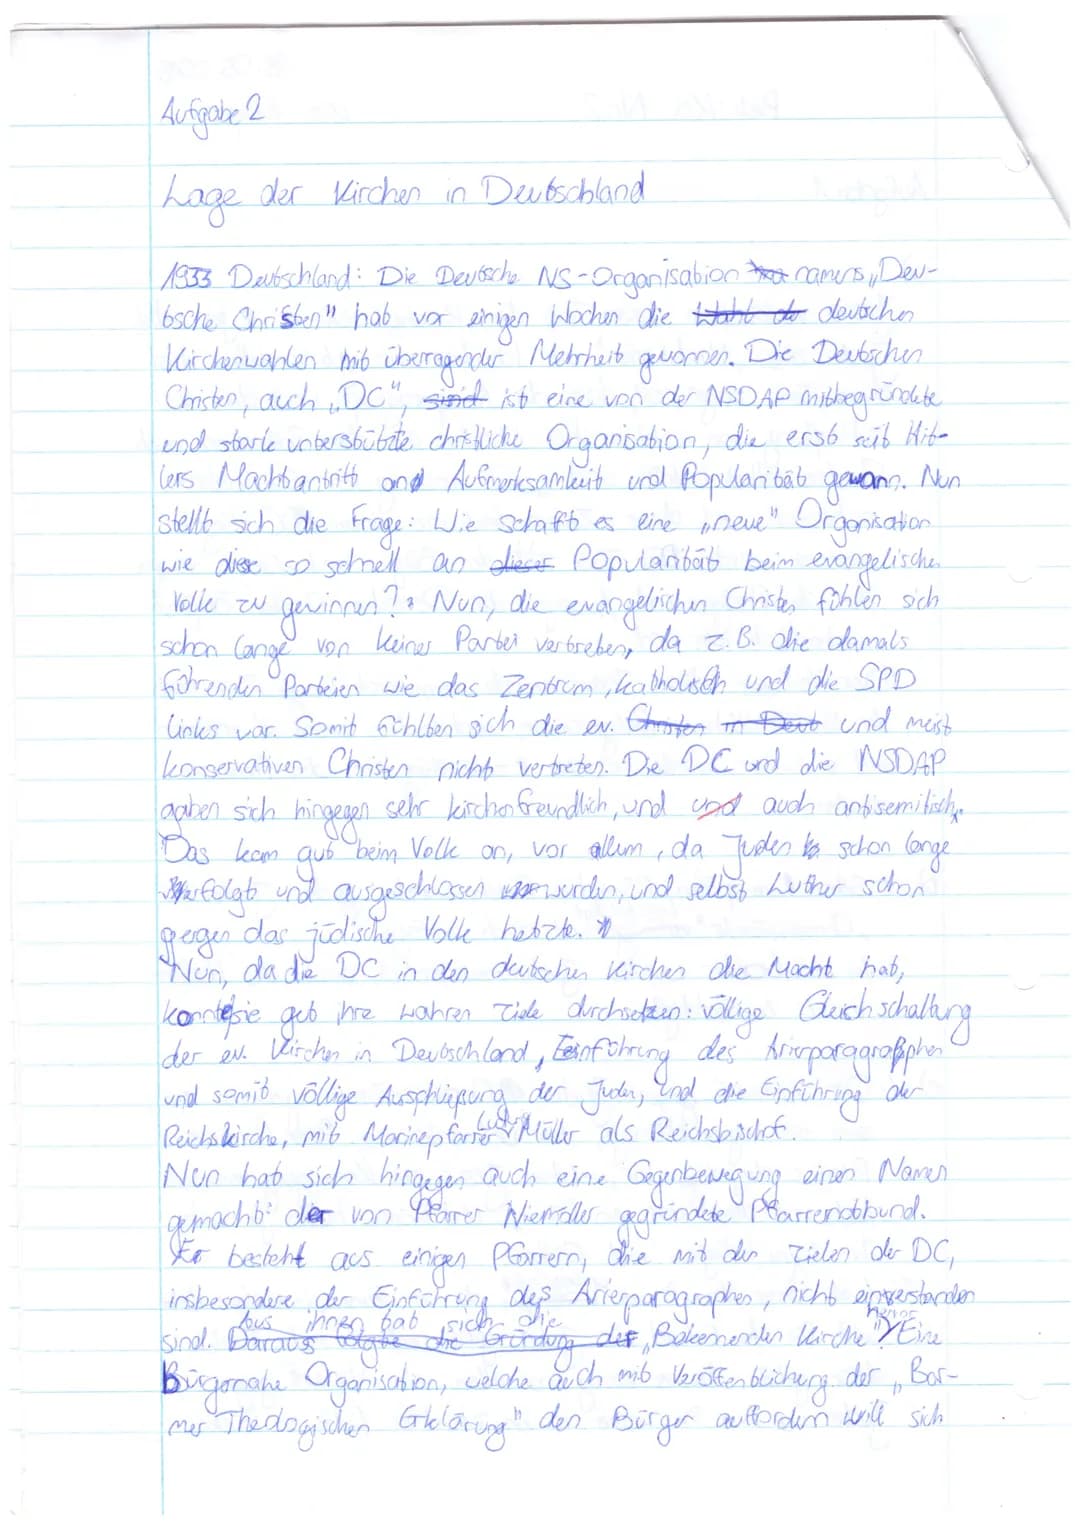 Aufgabe 2
Lage der Kirchen in Deutschland
1933 Deutschland: Die Deutsche NS-Organisation namens „Deu-
tsche Christen" hat vor einigen Wochen die Wahl de deutschen
Kirchenwahlen mit überragender Mehrheit gewonnen. Die Deutschen
Christen, auch „DC", sind ist eine von der NSDAP mitbegründete
und stark unterstützte christliche Organisation, die erst seit Hit-
lers Machtantritt an Aufmerksamkeit und Popularität gewann. Nun
stellt sich die Frage: Wie schafft es eine „neue" Organisation
wie diese so schnell an dieser Popularität beim evangelischen
Volk zu gewinnen? Nun, die evangelischen Christen fühlen sich
schon lange von keiner Partei vertreten, da z.B. die damals
führenden Parteien wie das Zentrum, katholisch und die SPD
links war. Somit fühlten sich die ev. Christen in Deut und meist
konservativen Christen nicht vertreten. Die DC und die NSDAP
gaben sich hingegen sehr kirchenfreundlich, und und auch antisemitisch.
Das kam gut beim Volk an, vor allem, da Juden schon lange
verfolgt und ausgeschlossen wurden, und selbst Luther schon
gegen das jüdische Volk hetzte.
Nun, da die DC in den deutschen Kirchen die Macht hat,
konnte sie gut ihre wahren Ziele durchsetzen: völlige Gleichschaltung
der ev. Kirchen in Deutschland, Einführung des Arierparagraphen
und somit völlige Ausschließung der Juden, und die Einführung der
Reichskirche, mit Marinepfarrer Ludwig Müller als Reichsbischof.
Nun hat sich hingegen auch eine Gegenbewegung einen Namen
gemacht: der von Pfarrer Niemöller gegründete Pfarrernotbund.
Er besteht aus einigen Pfarrern, die mit den Zielen der DC,
insbesondere der Einführung des Arierparagraphen, nicht einverstanden
aus ihnen hat sich die hervor
sind. Daraus folgte die Gründung der „Bekennenden Kirche". Eine
Bürgernahe Organisation, welche auch mit Veröffentlichung der „Bar-
mer Theologischen Erklärung" den Bürger auffordern will sich